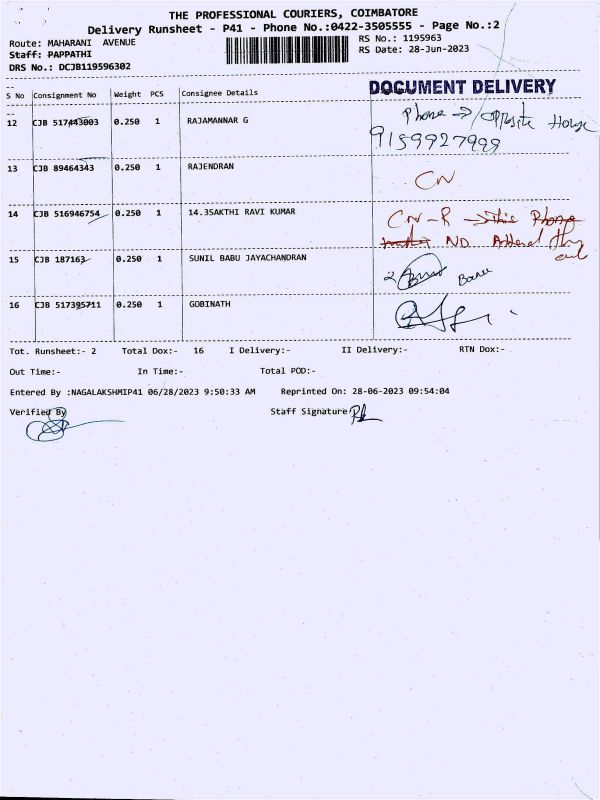 THE PROFESSIONAL COURIERS, COIMBATORE
Delivery Runsheet - P41 - Phone No.:0422-3505555 - Page No.:2
Route: MAHARANI AVENUE
RS No.: 1195963
Staff: PAPPATHI
RS Date: 28-Jun-2023
DRS No.: DCJB119596302
DOCUMENT DELIVERY
S No Consignment No Weight PCS Consignee Details
12 CJB 517443003 0.250 1 RAJAMANNAR G Phone → opposite House
9159927999
13 CJB 89464343 0.250 1 RAJENDRAN CN
14 CJB 516946754 0.250 1 14.3SAKTHI RAVI KUMAR CN-R → This Phone
ND. Attend
15 CJB 187163 0.250 1 SUNIL BABU JAYACHANDRAN
16 CJB 517395711 0.250 1 GOBINATH
Tot. Runsheet:- 2 Total Dox:- 16 I Delivery:- II Delivery:- RTN Dox:-
Out Time:- In Time:- Total POD:-
Entered By :NAGALAKSHMIP41 06/28/2023 9:50:33 AM Reprinted On: 28-06-2023 09:54:04
Verified By Staff Signature